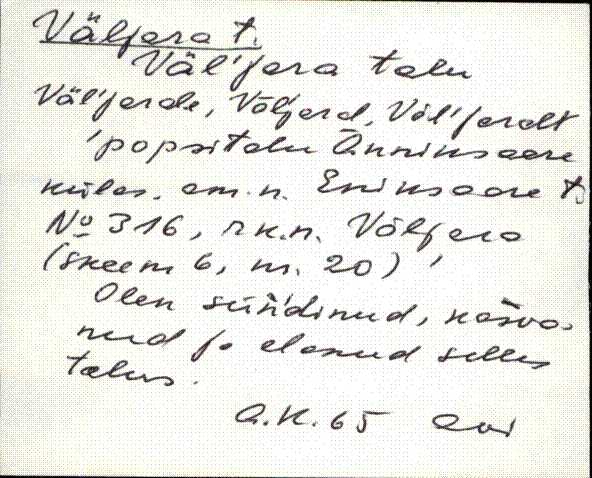 Väljera t.
Väl'jera talu
Väl'jerde, Väljerd, Väl'jeralt
'popsitalu Änniksaare
külas. am.n. Eniksaare t.
No 316, rk.n. Väljera
(skeem 6, nr. 20)'
Olen süńdinud, kasva-
nud ja elanud selles
talus.
A.K. 65 Avi